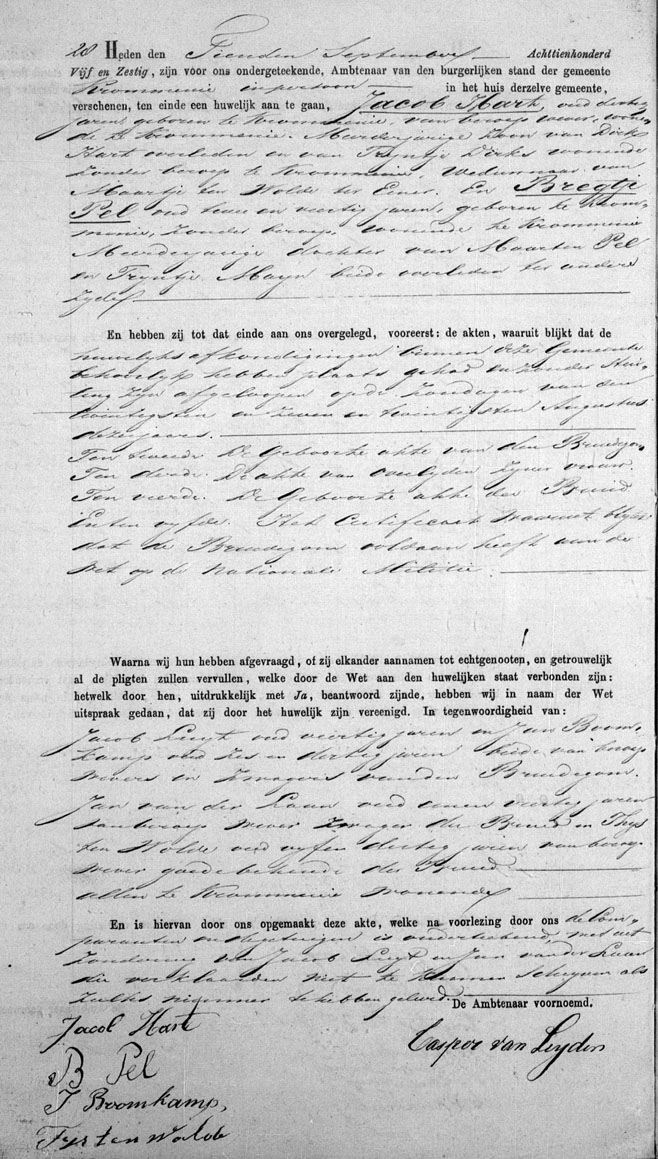 28 Heden den Tienden September Achttienhonderd
Vijf en Zestig, zijn voor ons ondergeteekende, Ambtenaar van den burgerlijken stand der gemeente
Krommenie in persoon in het huis derzelve gemeente,
verschenen, ten einde een huwelijk aan te gaan, Jacob Hart, oud dertig
jaren geboren te Krommenie, van beroep wever, wonen-
de te Krommenie. Meerderjarige Zoon van Dirk
Hart overleden en van Tryntje Dirks wonende
zonder beroep te Krommenie, Weduwnaar van
Maartje ten Wolde ter Eener. En Bregtje
Pel oud twee en veertig jaren, geboren te Krom-
menie, zonder beroep, wonende te Krommenie
Meerderjarige dochter van Maarten Pel
en Tryntje Mayn beide overleden ter andere
zyde
En hebben zij tot dat einde aan ons overgelegd, vooreerst: de akten, waaruit blijkt dat de
huwelyks afkondigingen binnen deze Gemeente
behoorlyk hebben plaats gehad en zonder Stui-
ting zyn afgeloopen op de Zondagen van den
twintigsten en zeven en twintigsten Augustus
dezer jaars.
Ten tweede De Geboorte akte van den Bruidegom
Ten derde. De akte van overlyden zyner vrouw
Ten vierde. De Geboorte akte der Bruid
En ten vyfde. Het Certificaat waaruit blykt
dat de Bruidegom voldaan heeft aan de
Wet op de Nationale Militie.
Waarna wij hun hebben afgevraagd, of zij elkander aannamen tot echtgenooten, en getrouwelijk
al de pligten zullen vervullen, welke door de Wet aan den huwelijken staat verbonden zijn:
hetwelk door hen, uitdrukkelijk met Ja, beantwoord zijnde, hebben wij in naam der Wet
uitspraak gedaan, dat zij door het huwelijk zijn vereenigd. In tegenwoordigheid van:
Jacob Luyt oud veertig jaren en Jan Boom-
kamp oud zes en dertig jaren beide van beroep
wevers en Zwagers van den Bruidegom.
Jan van der Laan oud een en veertig jaren
van beroep wever Zwager der Bruid en Thys
ten Wolde oud vyf en dertig jaren van beroep
wever goede bekende der Bruid
allen te Krommenie wonende
En is hiervan door ons opgemaakt deze akte, welke na voorlezing door ons de Com-
paranten en getuigen is onderteekend, met uit
zondering van Jacob Luyt en Jan van der Laan
die verklaarden niet te kunnen schryven als
zulks nimmer te hebben geleerd
De Ambtenaar voornoemd.
Jacob Hart
Casper van Leyden
B Pel
J Boomkamp,
Tys ten Wolde